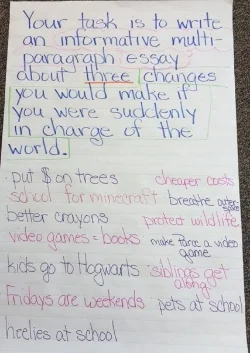 Your task is to write
an informative multi-
paragraph essay
about three changes
you would make if
you were suddenly
in charge of the
world.
· put $ on trees cheaper costs
school for minecraft breathe outer space
better crayons protect wildlife
video games = books make Farce a video game
kids go to Hogwarts siblings get along
Fridays are weekends pets at school
heelies at school